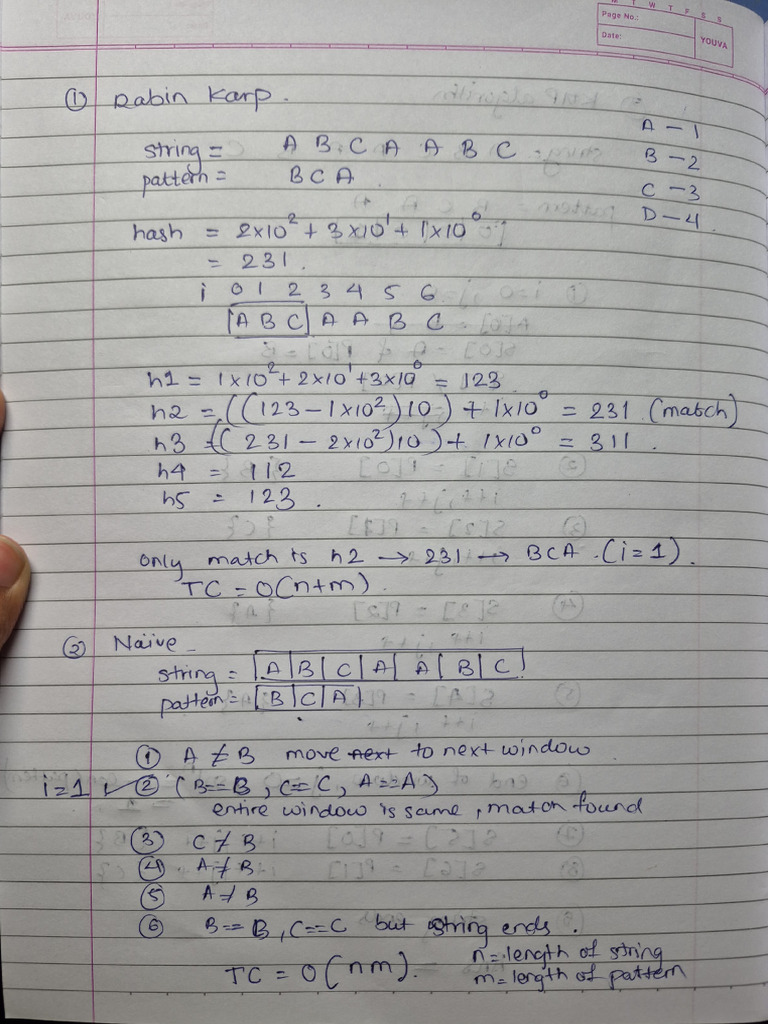 M T W T F S S
Page No.:
Date:
YOUVA
① Rabin Karp.
string = A B C A A B C
pattern = B C A
A - 1
B - 2
C - 3
D - 4
hash = 2x10² + 3x10¹ + 1x10⁰
= 231.
i 0 1 2 3 4 5 6
A B C A A B C
h1 = 1x10² + 2x10¹ + 3x10⁰ = 123
h2 = ((123 - 1x10²)10) + 1x10⁰ = 231 (match)
h3 = (231 - 2x10²)10) + 1x10⁰ = 311.
h4 = 112
h5 = 123.
only match is h2 → 231 → BCA. (i=1).
TC = O(n+m).
② Naive
string = |A|B|C|A|A|B|C|
pattern = |B|C|A|
① A ≠ B move next to next window
i=1 ✓ ② (B==B, C==C, A==A)
entire window is same, match found
③ C ≠ B
④ A ≠ B
⑤ A ≠ B
⑥ B==B, C==C but string ends.
TC = O(nm).
n = length of string
m = length of pattern